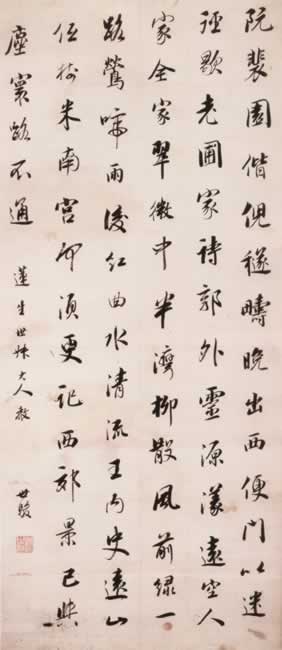 阮裴園偕倪穟疇晚出西便門以迷
歇老圃家詩郭外靈源漾遠空人
家全家翠微中半灣柳散風前綠一
路鶯啼雨後紅曲水清流王內史遠山
米南宮須更記西郊景已與
塵寰路不通
蓮生世大人教
世駿